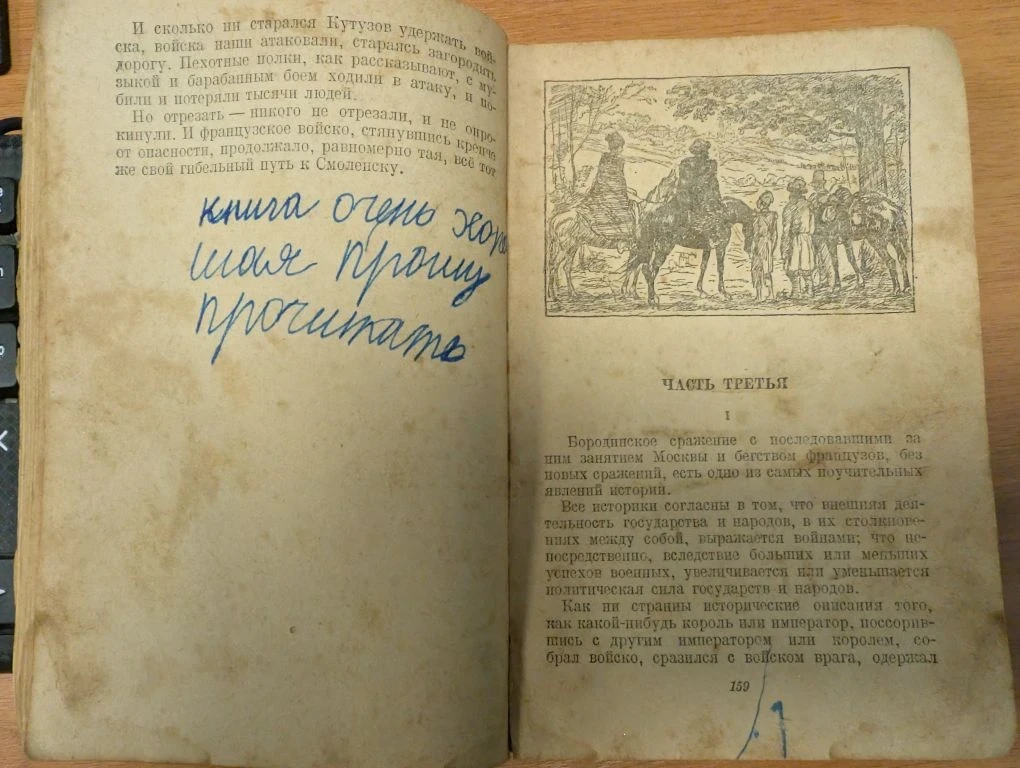 И сколько ни старался Кутузов удержать вой-
ска, войска наши атаковали, стараясь загородить
дорогу. Пехотные полки, как рассказывают, с му-
зыкой и барабанным боем ходили в атаку, и по-
били и потеряли тысячи людей.
Но отрезать — никого не отрезали, и не опро-
кинули. И французское войско, стянувшись крепче
от опасности, продолжало, равномерно тая, всё тот
же свой гибельный путь к Смоленску.
книга очень хоро
шая прошу
прочитать
ЧАСТЬ ТРЕТЬЯ
I
Бородинское сражение с последовавшими за
ним занятием Москвы и бегством французов, без
новых сражений, есть одно из самых поучительных
явлений истории.
Все историки согласны в том, что внешняя дея-
тельность государства и народов, в их столкнове-
ниях между собой, выражается войнами; что не-
посредственно, вследствие больших или меньших
успехов военных, увеличивается или уменьшается
политическая сила государств и народов.
Как ни странны исторические описания того,
как какой-нибудь король или император, поссорив-
шись с другим императором или королем, со-
брал войско, сразился с войском врага, одержал
159